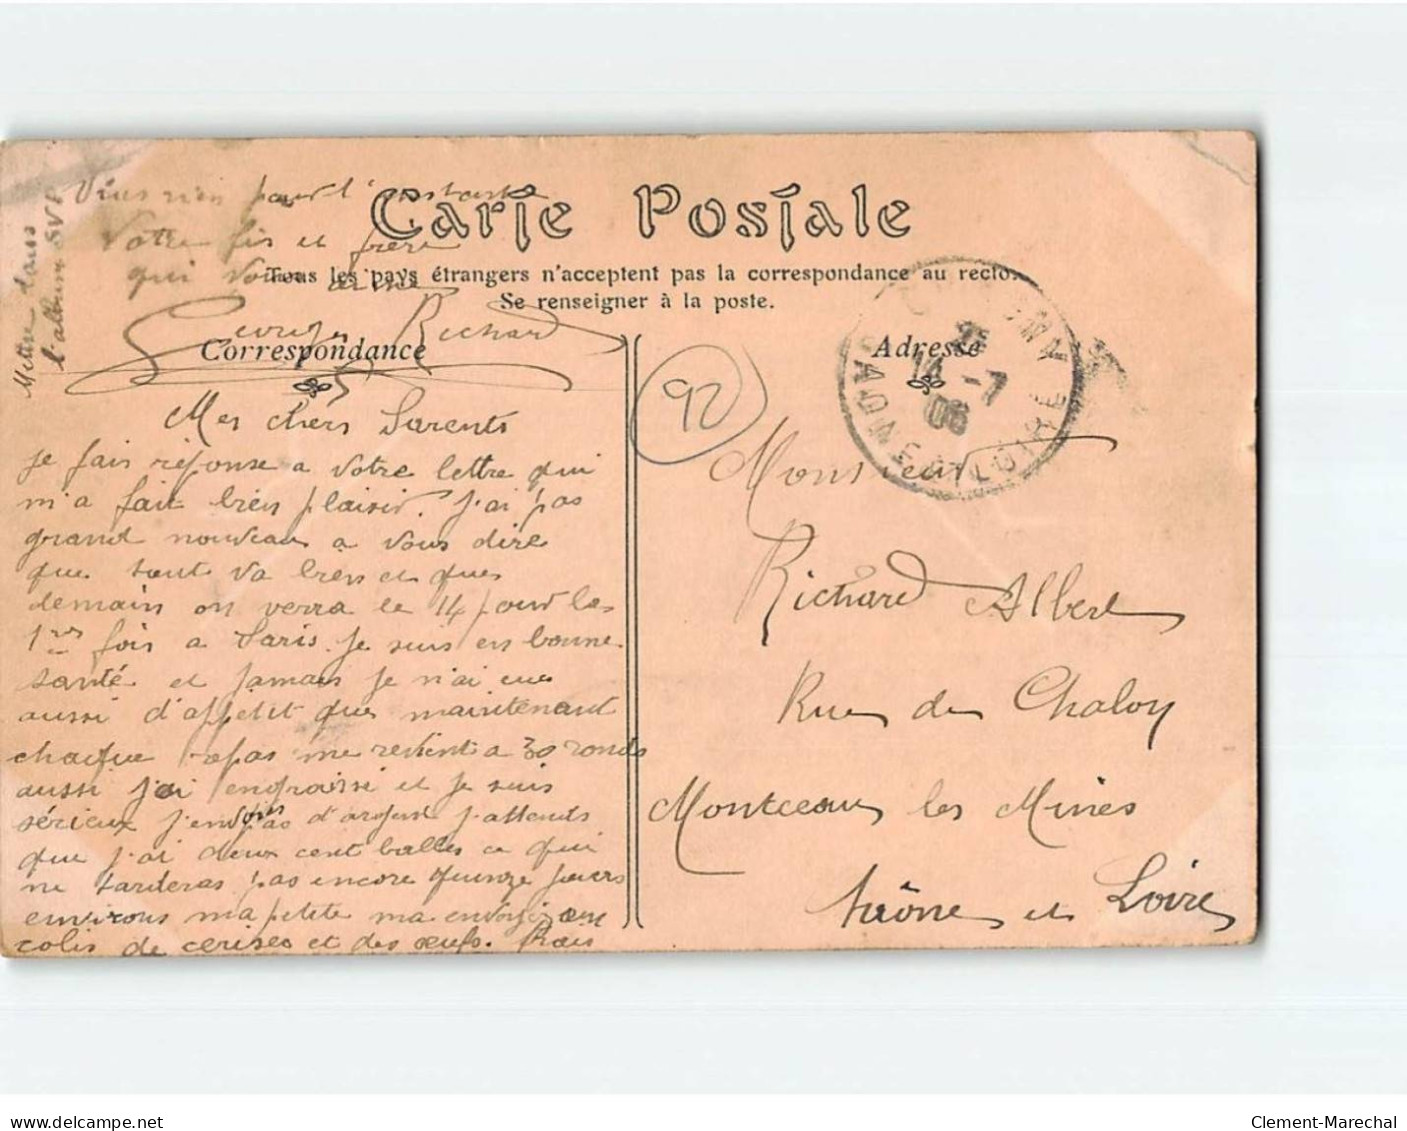 Carte Postale
Tous les pays étrangers n'acceptent pas la correspondance au recto.
Se renseigner à la poste.
Correspondance
Adresse
92
14 -7
06
SAONE-ET-LOIRE
Mes chers Parents
Je fais réponse a votre lettre qui
m'a fait bien plaisir. J'ai pas
grand nouveau a vous dire
que tout va bien et que
demain on verra le 14 pour la
1re fois a Paris. Je suis en bonne
santé et jamais je n'ai eue
aussi d'appetit que maintenant
chaque repas me revient a 30 ronds
aussi j'ai engraissé et je suis
sérieux j'envois pas d'argent j'attends
que j'ai deux cent balles ce qui
ne tarderas pas encore quinze jours
environs ma petite ma envoyé un
colis de cerises et des œufs. Mais
rien pour l'instant
Votre fis et frère
qui vous aime
Georges Richard
Mettre dans
l'album SVP
Monsieur
Richard Albert
Rue de Chalon
Montceau les Mines
Saône et Loire
delcampe.net
Clement-Marechal